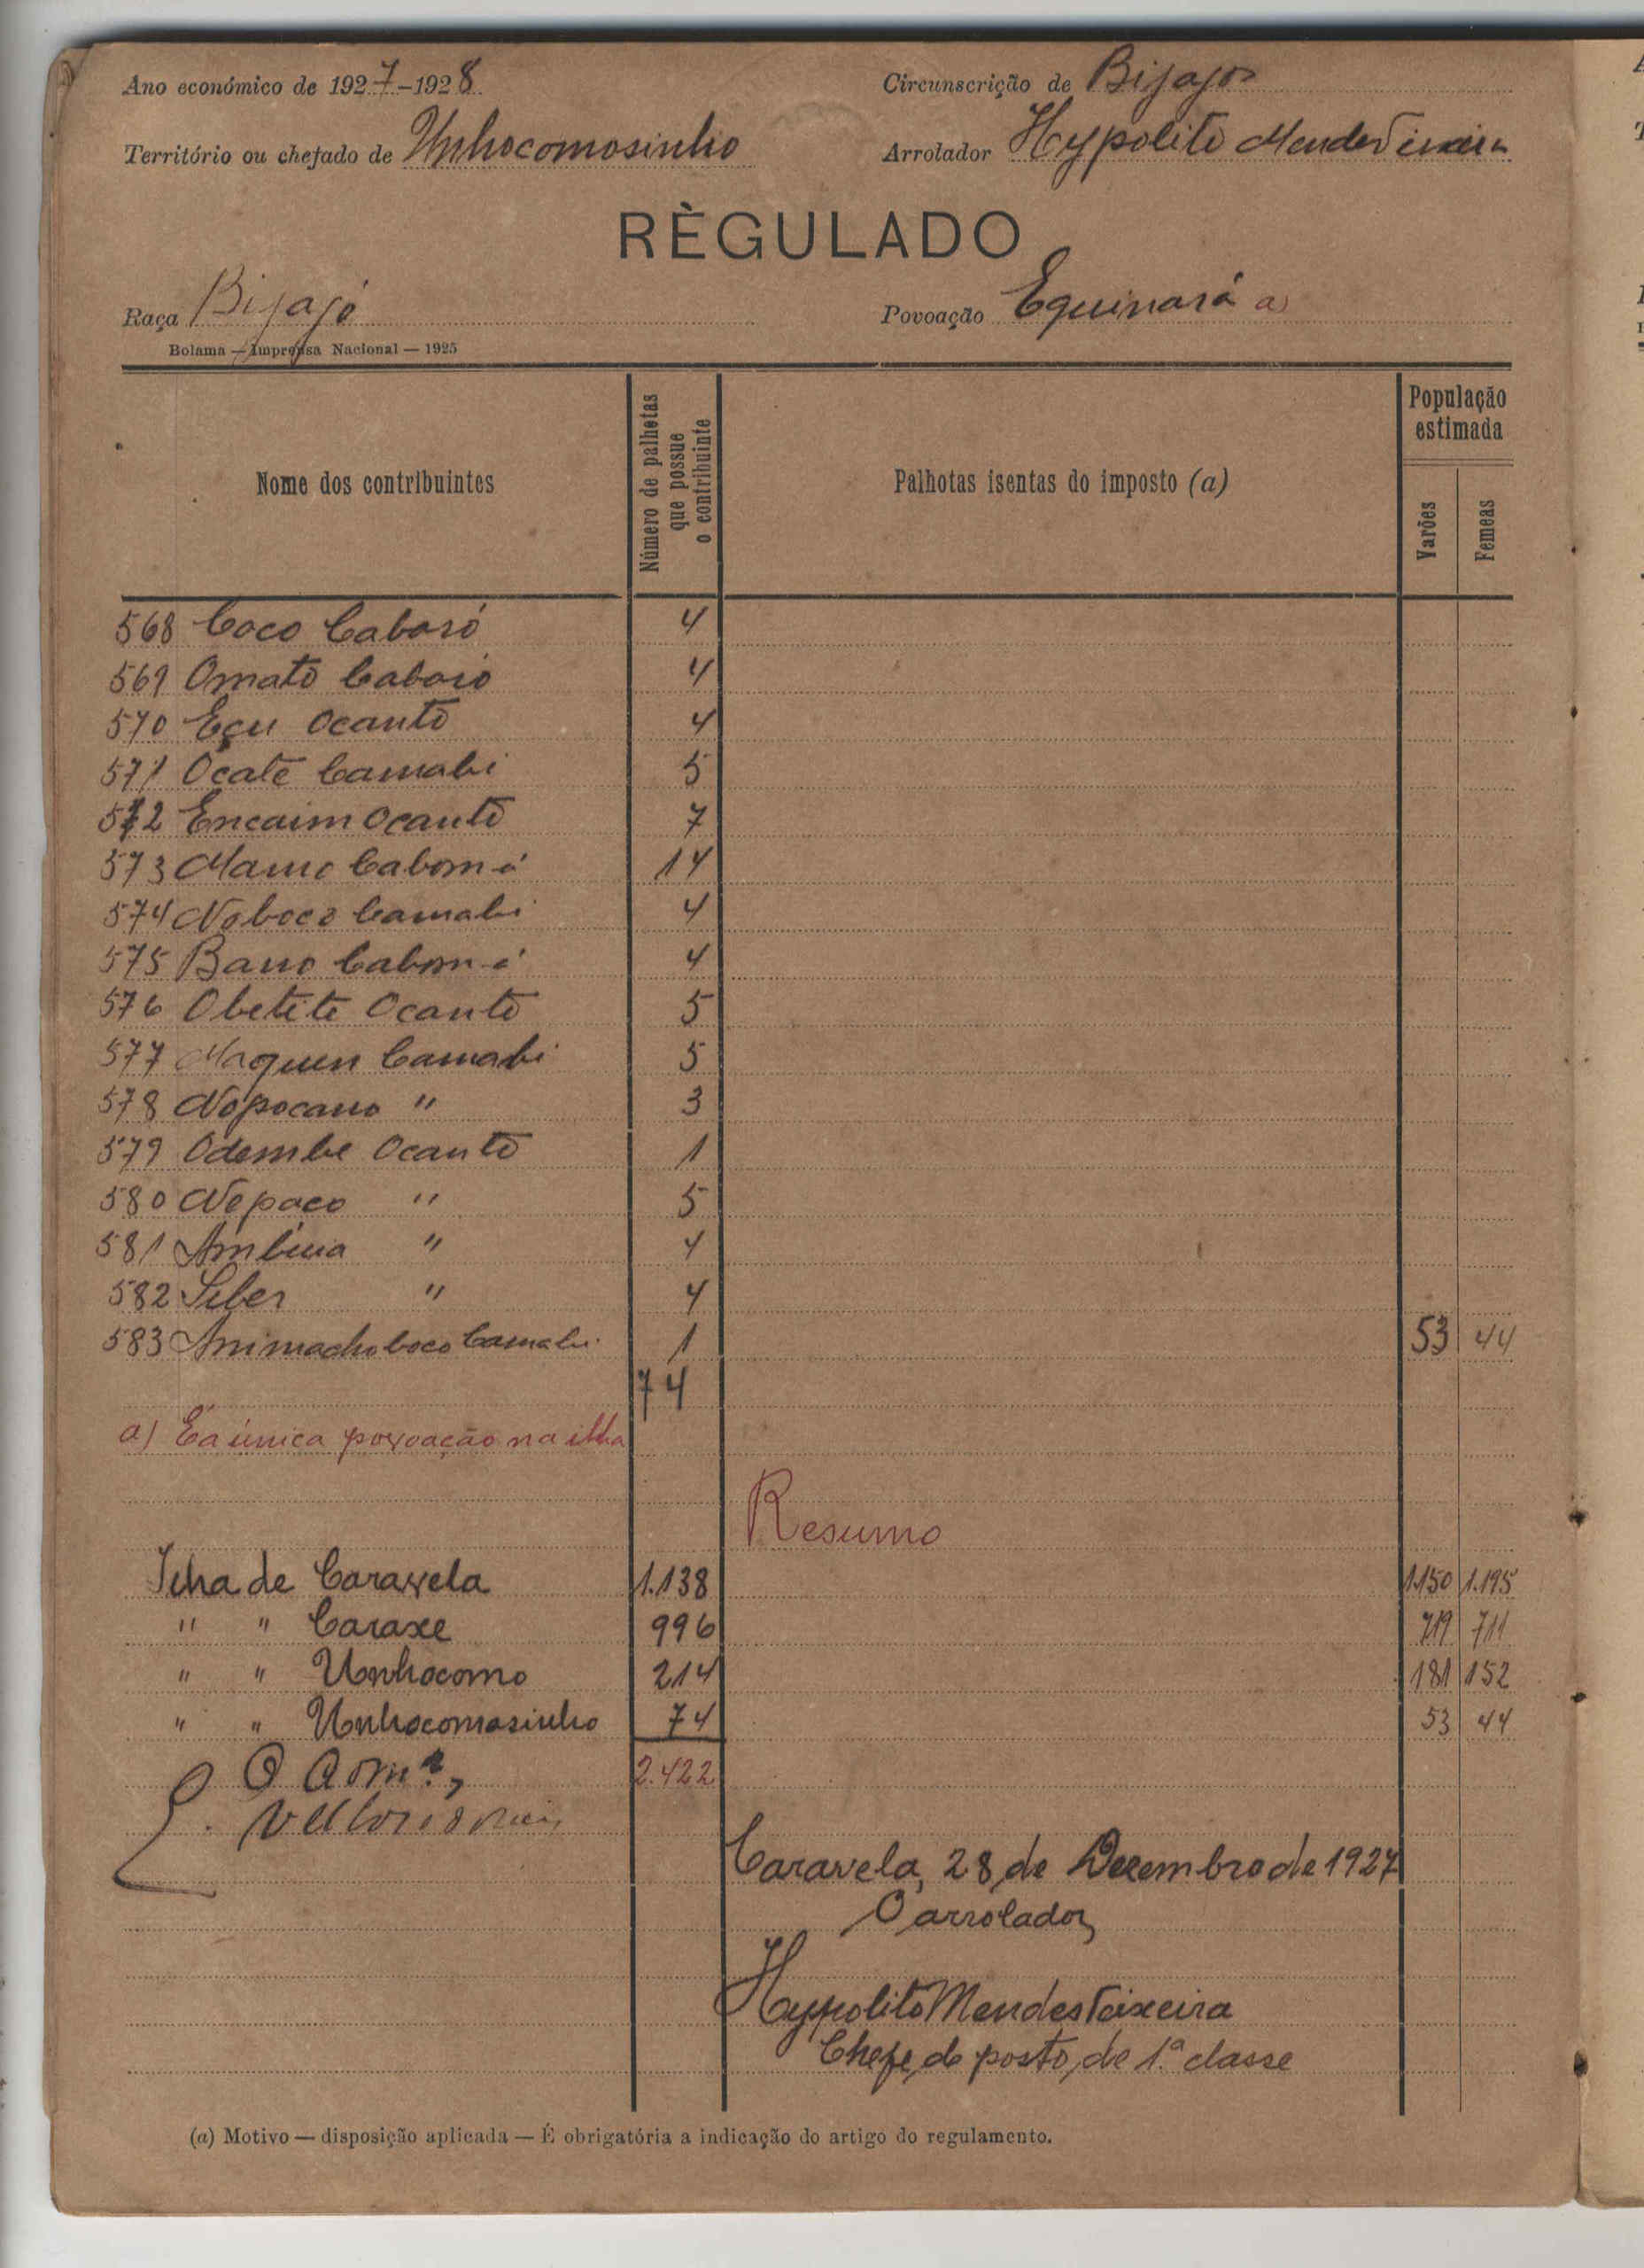 Ano económico de 1927-1928 Circunscrição de Bijagos
Território ou chefado de Unhocomosinho Arrolador Hypolito Mendes Teixeira
RÈGULADO
Raça Bijagó Povoação Equinará a)
Bolama — Imprensa Nacional — 1925
Nome dos contribuintes
Número de palhetas que possue o contribuinte
Palhotas isentas do imposto (a)
População estimada
Varões
Femeas
568 Coco Caboró 4
569 Omato Caboró 4
570 Eçu Ocanto 4
571 Ocate Camabi 5
572 Encaim Ocanto 7
573 Mamo Cabom-á 14
574 Noboco Camabi 4
575 Bano Cabom-á 4
576 Obetite Ocanto 5
577 Maquen Camabi 5
578 Nopocano " 3
579 Odembe Ocanto 1
580 Nepaco " 5
581 " 4
582 " 4
583 Camabi 1 53 44
74
a) É a única povoação na ilha
Resumo
Ilha de Caravela 1.138 1.150 1.195
" " Caraxe 996 719 711
" " Unhocomo 214 181 152
" " Unhocomosinho 74 53 44
O Adm.or, 2.422
Caravela, 28 de Dezembro de 1927
O arrolador,
Hypolito Mendes Teixeira
Chefe de posto, de 1.ª classe
(a) Motivo — disposição aplicada — É obrigatória a indicação do artigo do regulamento.